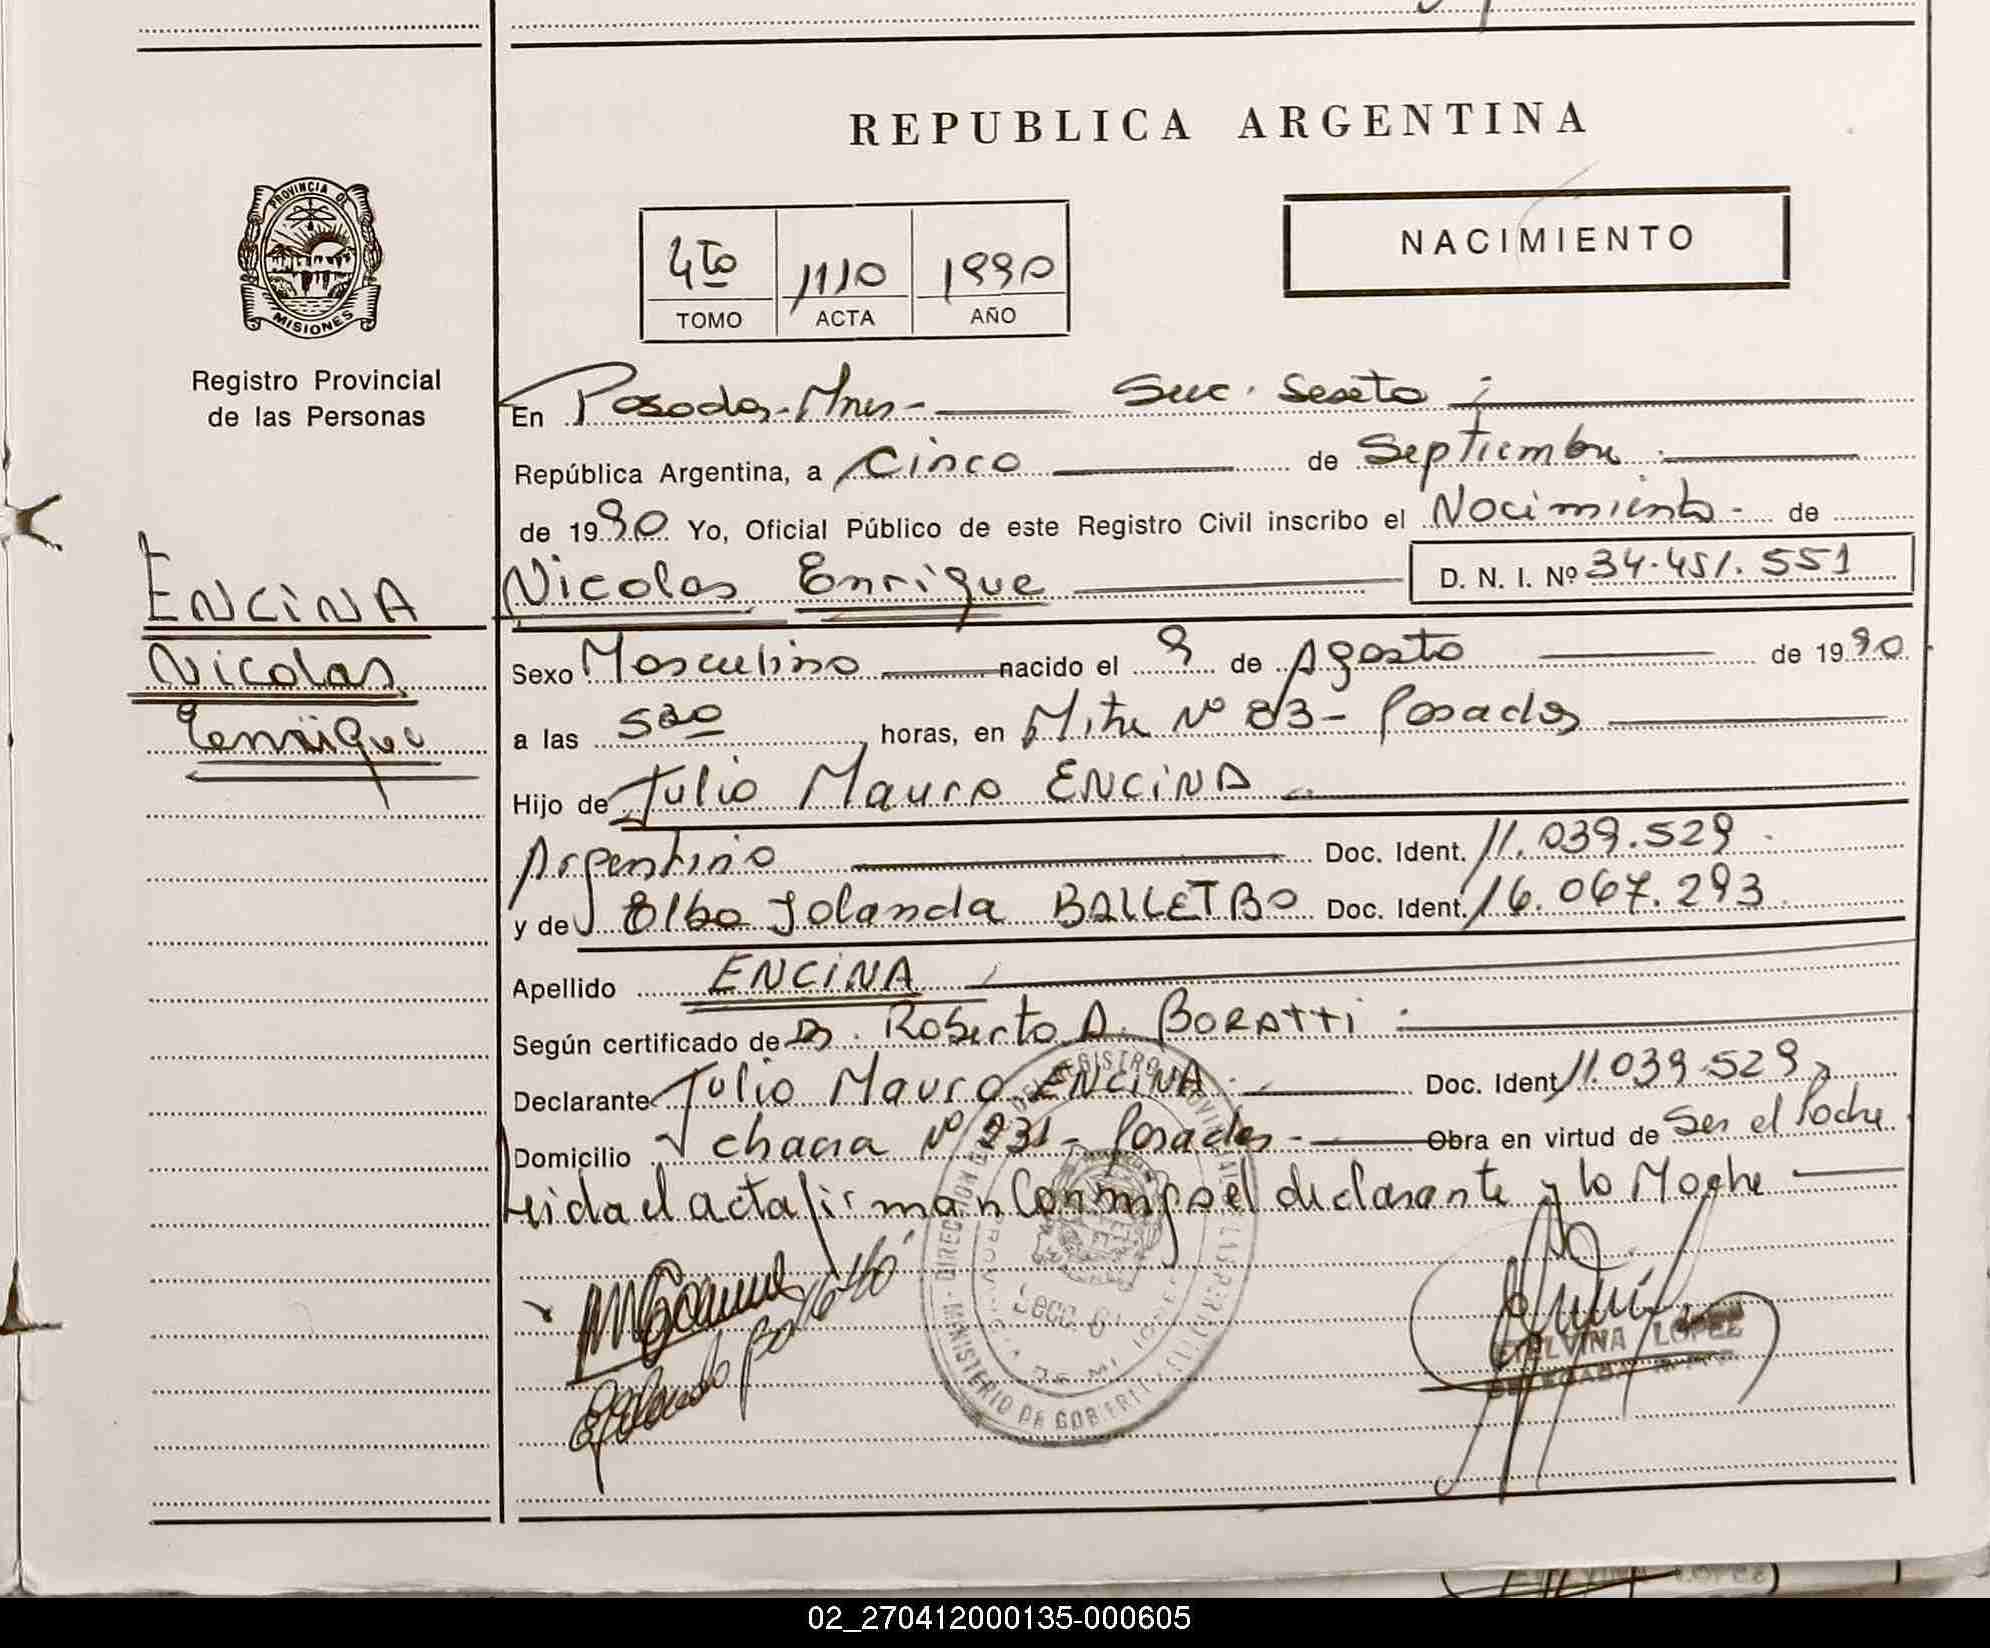 REPUBLICA ARGENTINA
PROVINCIA DE
MISIONES
Registro Provincial
de las Personas
4to 1110 1990
TOMO ACTA AÑO
NACIMIENTO
En Posadas - Mnes - Secc. Sexta
República Argentina, a Cinco de Septiembre
de 1990 Yo, Oficial Público de este Registro Civil inscribo el Nacimiento - de
Nicolas Enrique D. N. I. Nº 34.451.551
ENCINA
Nicolas
Enrique
Sexo Masculino nacido el 9 de Agosto de 1990
a las 520 horas, en Mitre Nº 83 - Posadas
Hijo de Julio Mauro ENCINA
Argentino Doc. Ident. 11.039.529
y de Elba Yolanda BALLETBO Doc. Ident. 16.067.293
Apellido ENCINA
Según certificado de Dr. Roberto A. BORATTI
Declarante Julio Mauro ENCINA Doc. Ident 11.039.529
Domicilio chacra Nº 231 - Posadas - Obra en virtud de Ser el Padre
Leida el acta firman Conmigo el declarante y la Madre
Secc. 6
ETELVINA LOPEZ
02_270412000135-000605